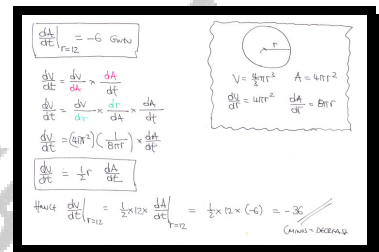 dA/dt |r=12 = -6 GIVEN
dV/dt = dV/dA × dA/dt
dV/dt = dV/dr × dr/dA × dA/dt
dV/dt = (4πr²)(1/8πr) × dA/dt
dV/dt = ½r dA/dt
HENCE dV/dt |r=12 = ½×12× dA/dt |r=12 = ½×12×(-6) = -36
(MINUS = DECREASE
r
V = 4/3πr³ A = 4πr²
dV/dr = 4πr² dA/dr = 8πr